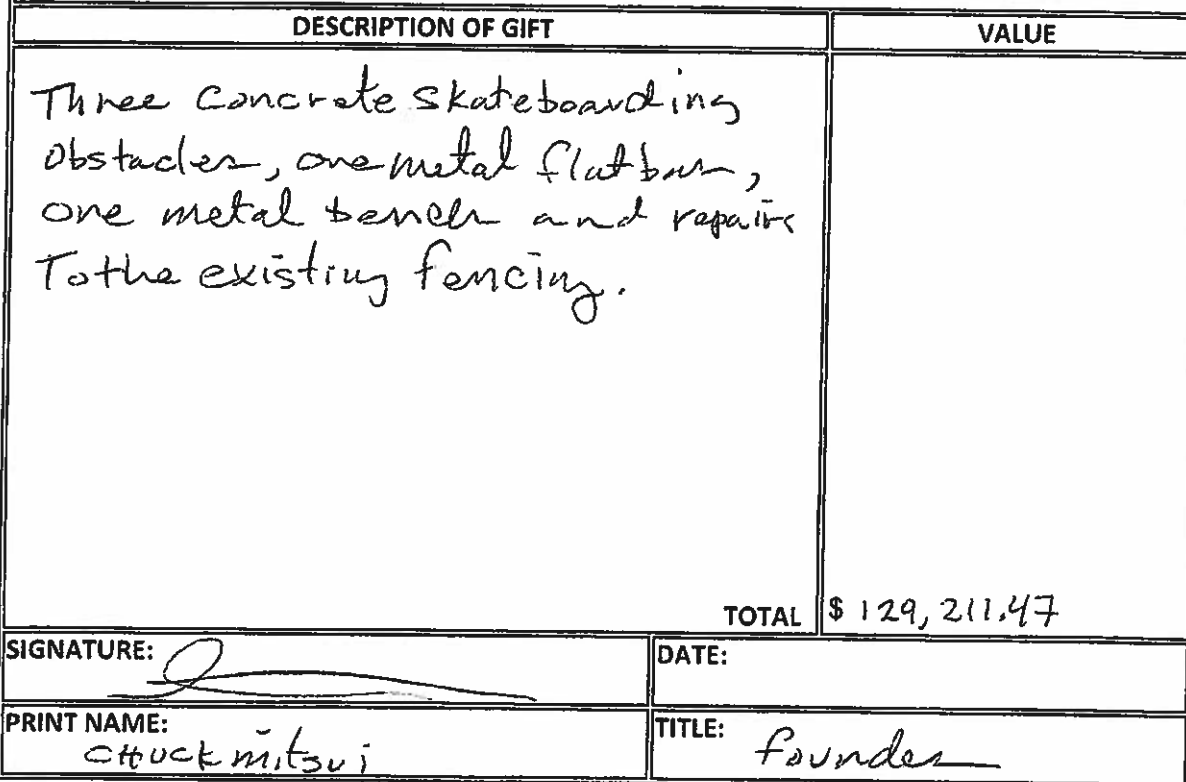 DESCRIPTION OF GIFT
VALUE
Three Concrete Skateboarding
Obstacles, one metal flatbar,
one metal bench and repairs
To the existing fencing.
TOTAL $ 129,211.47
SIGNATURE:
DATE:
PRINT NAME:
CHUCK mitsui
TITLE:
founder